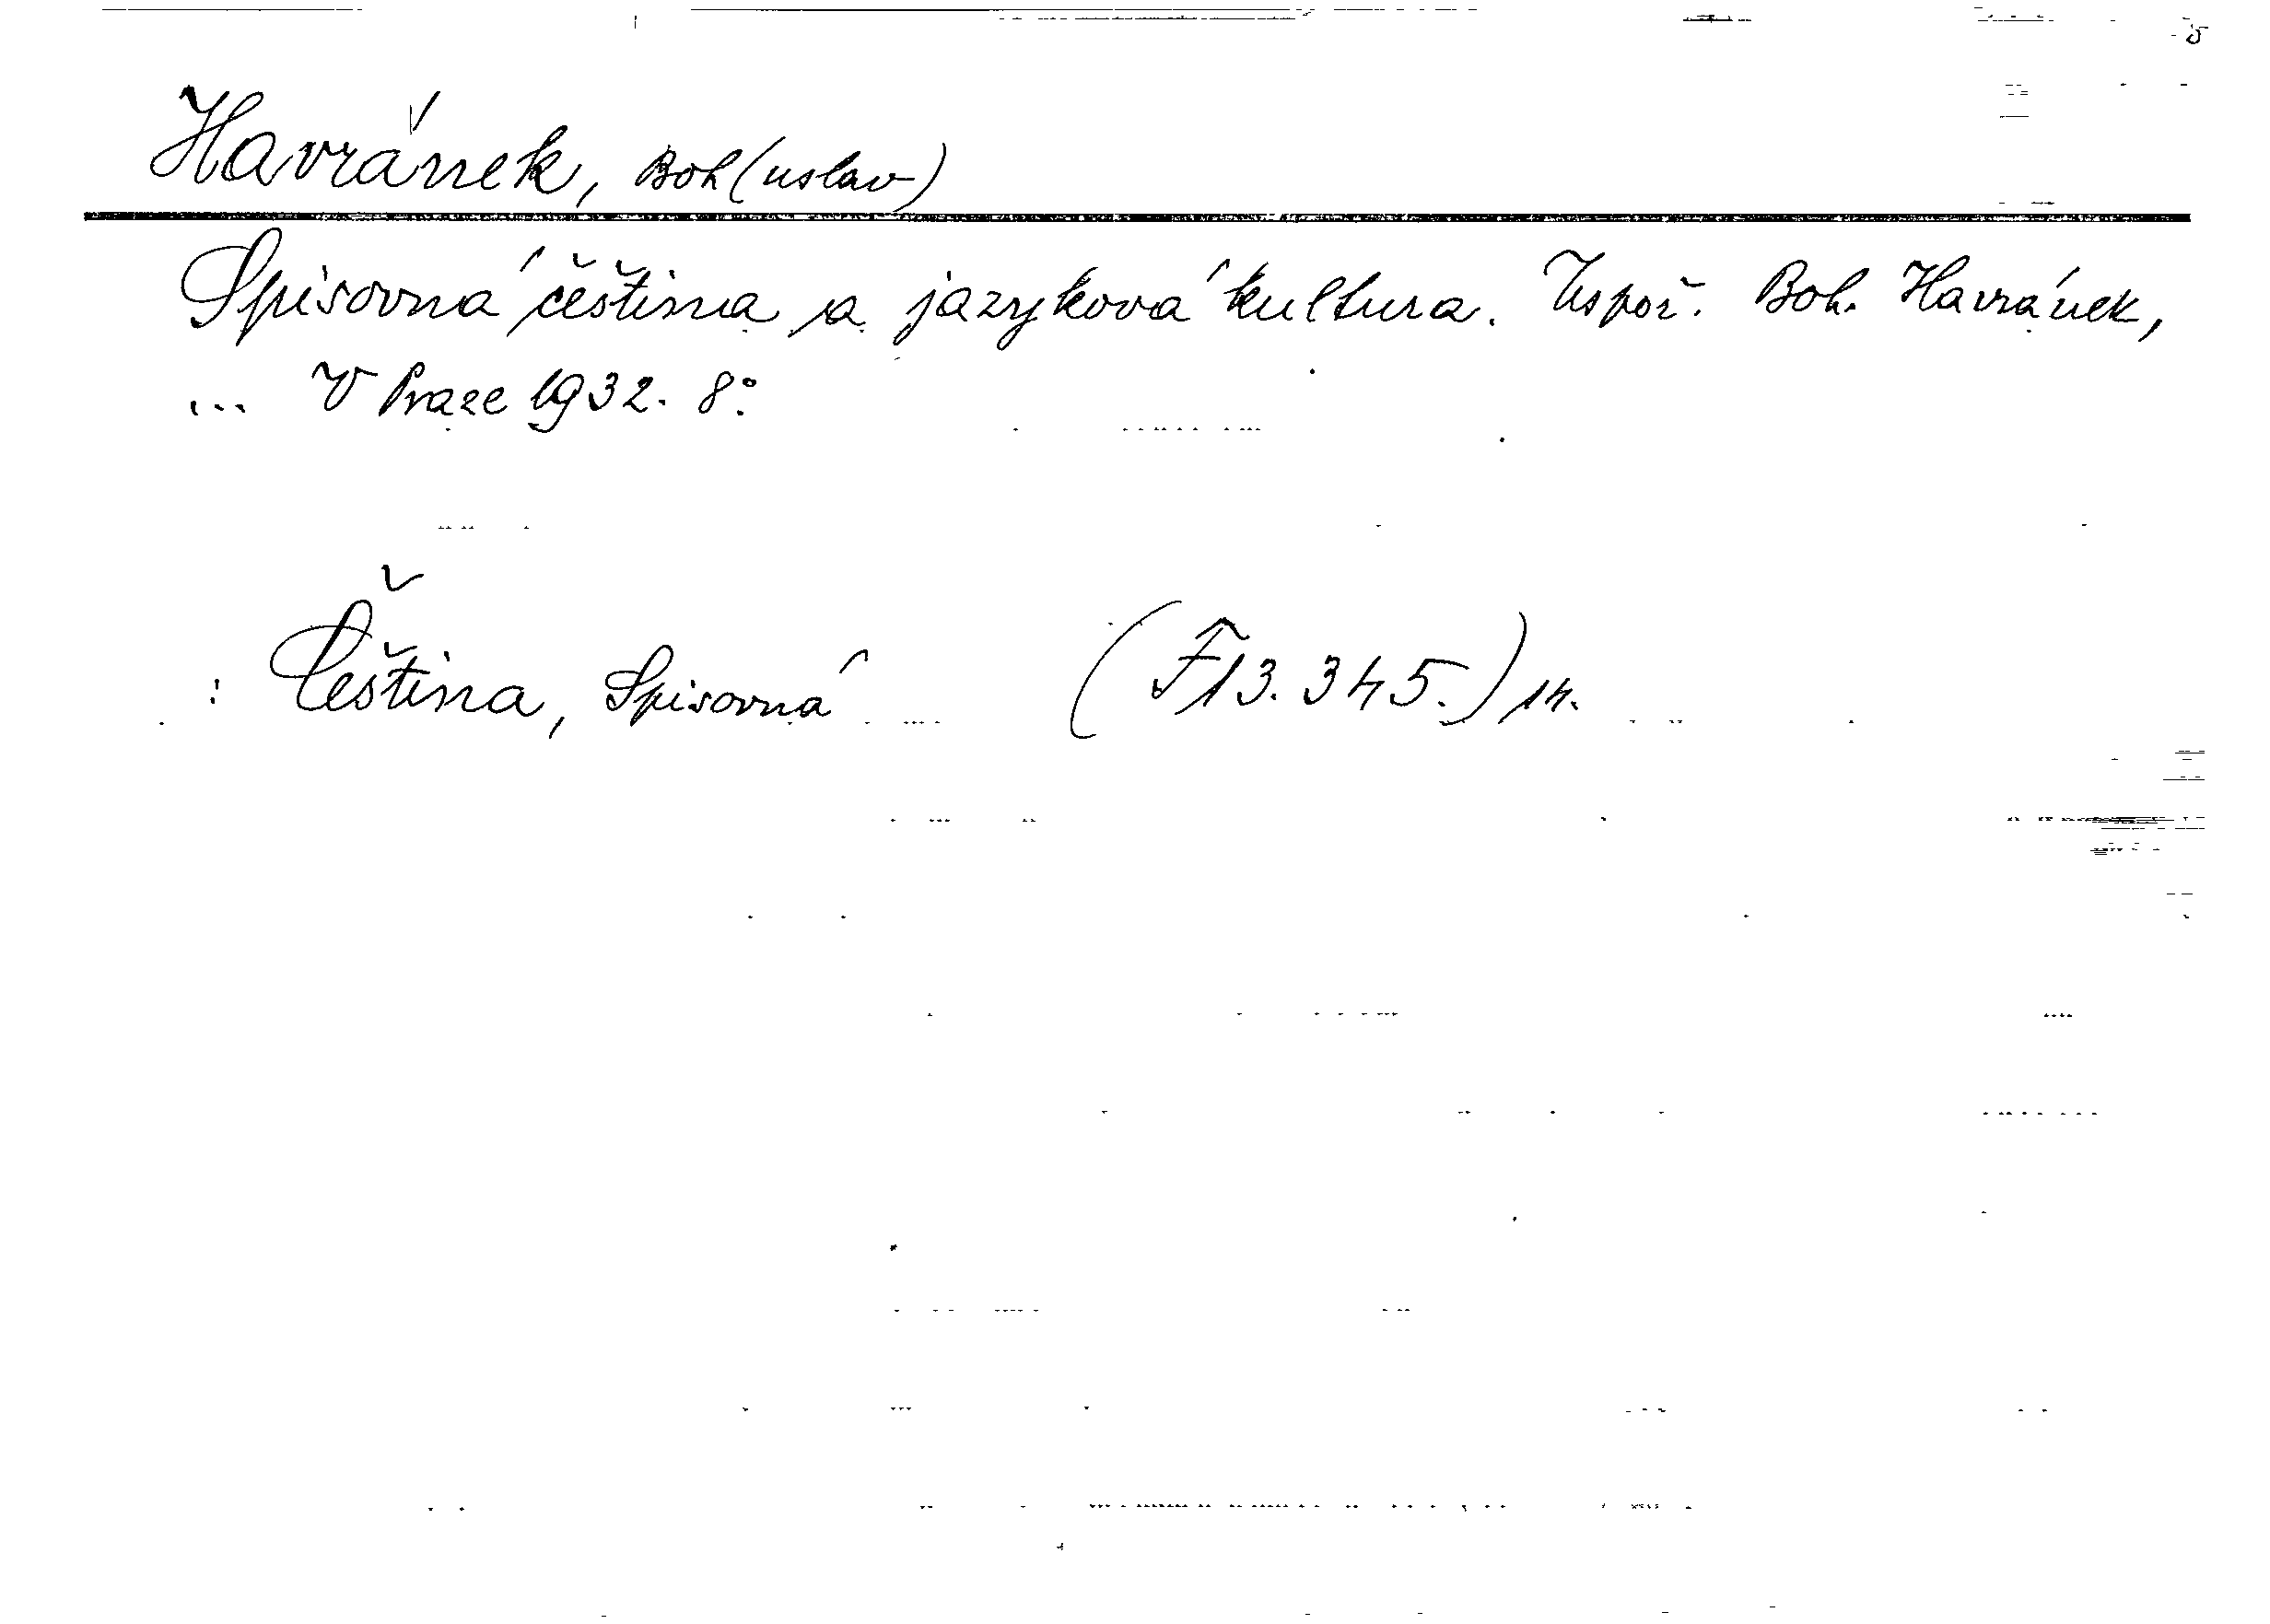 Havránek, Boh(uslav)
Spisovná čeština a jazyková kultura. Uspoř. Boh. Havránek,
... V Praze 1932. 8°.
: Čeština, Spisovná (F13.345.) 14.